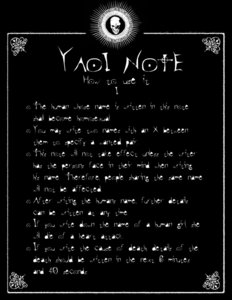 YAOI NOTE
How to use it
1
o The human whose name is written in this note
shall become homosexual
o You may write two names with an X between
them to specify a wanted pair
o This note will not take effect unless the writer
has the persons face in their mind when writing
his name. Therefore, people sharing the same name
will not be affected
o After writing the human name, further details
can be written at any time
o If you write down the name of a human girl she
will die of a heart attack
o If you write the cause of death details of the
death should be written in the next 6 minutes
and 40 seconds